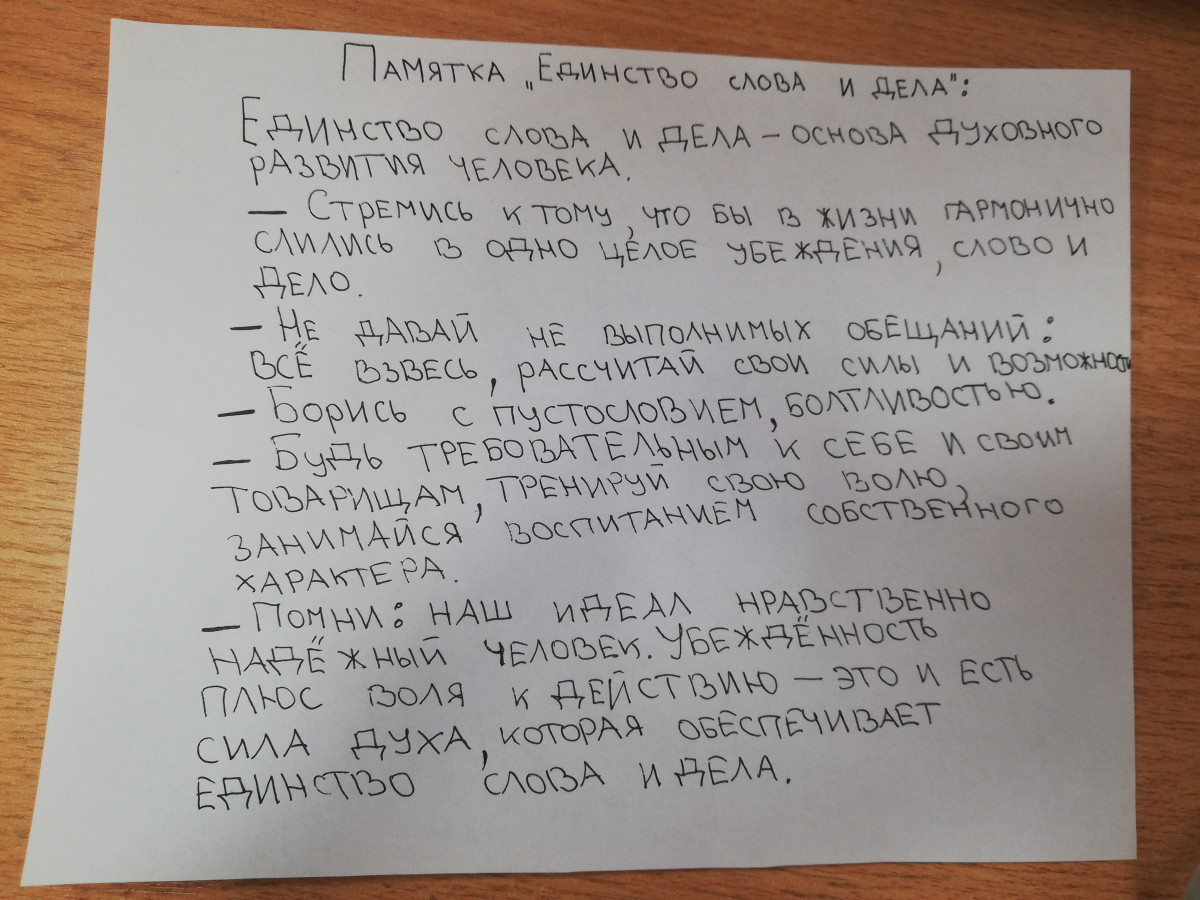 Памятка „Единство слова и дела":
Единство слова и дела – основа духовного
развития человека.
— Стремись к тому, что бы в жизни гармонично
слились в одно целое убеждения, слово и
дело.
— Не давай не выполнимых обещаний:
всё взвесь, рассчитай свои силы и возможности
— Борись с пустословием, болтливостью.
— Будь требовательным к себе и своим
товарищам, тренируй свою волю,
занимайся воспитанием собственного
характера.
— Помни: наш идеал нравственно
надёжный человек. Убеждённость
плюс воля к действию – это и есть
сила духа, которая обеспечивает
единство слова и дела.